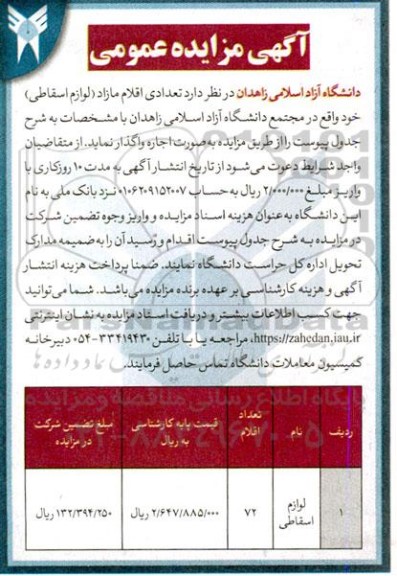 آگهی مزایده عمومی
دانشگاه آزاد اسلامی زاهدان در نظر دارد تعدادی اقلام مازاد (لوازم اسقاطی)
خود واقع در مجتمع دانشگاه آزاد اسلامی زاهدان با مشخصات به شرح
جدول پیوست را از طریق مزایده به صورت اجاره واگذار نماید. از متقاضیان
واجد شرایط دعوت می‌شود از تاریخ انتشار آگهی به مدت ۱۰ روزکاری با
واریز مبلغ ۲/۰۰۰/۰۰۰ ریال به حساب ۰۱۰۶۲۰۹۱۵۲۰۰۷ نزد بانک ملی به نام
این دانشگاه به عنوان هزینه اسناد مزایده و واریز وجوه تضمین شرکت
در مزایده به شرح جدول پیوست اقدام و رسید آن را به ضمیمه مدارک
تحویل اداره کل حراست دانشگاه نمایند. ضمنا پرداخت هزینه انتشار
آگهی و هزینه کارشناسی بر عهده برنده مزایده می‌باشد. شما می‌توانید
جهت کسب اطلاعات بیشتر و دریافت اسناد مزایده به نشان اینترنتی
https://zahedan.iau.ir، مراجعه یا با تلفن ۳۳۴۱۹۴۳۰-۰۵۴ دبیرخانه
کمیسیون معاملات دانشگاه تماس حاصل فرمایند.
ردیف نام تعداد اقلام قیمت پایه کارشناسی به ریال مبلغ تضمین شرکت در مزایده
۱ لوازم اسقاطی ۷۲ ۲/۶۴۷/۸۸۵/۰۰۰ ریال ۱۳۲/۳۹۴/۲۵۰ ریال
ParsNamadData
پایگاه اطلاع رسانی مناقصه و مزایده